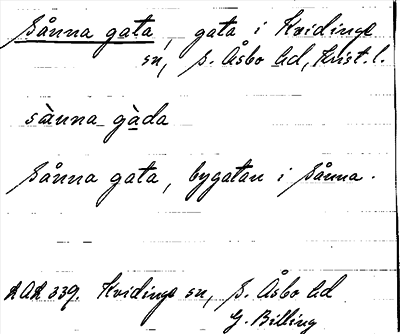 Sånna gata, gata i Kvidinge
sn, S. Åsbo hd, Krist. l.
sànna gàda
Sånna gata, bygatan i Sånna.
339. Kvidinge sn, S. Åsbo hd
G. Billing